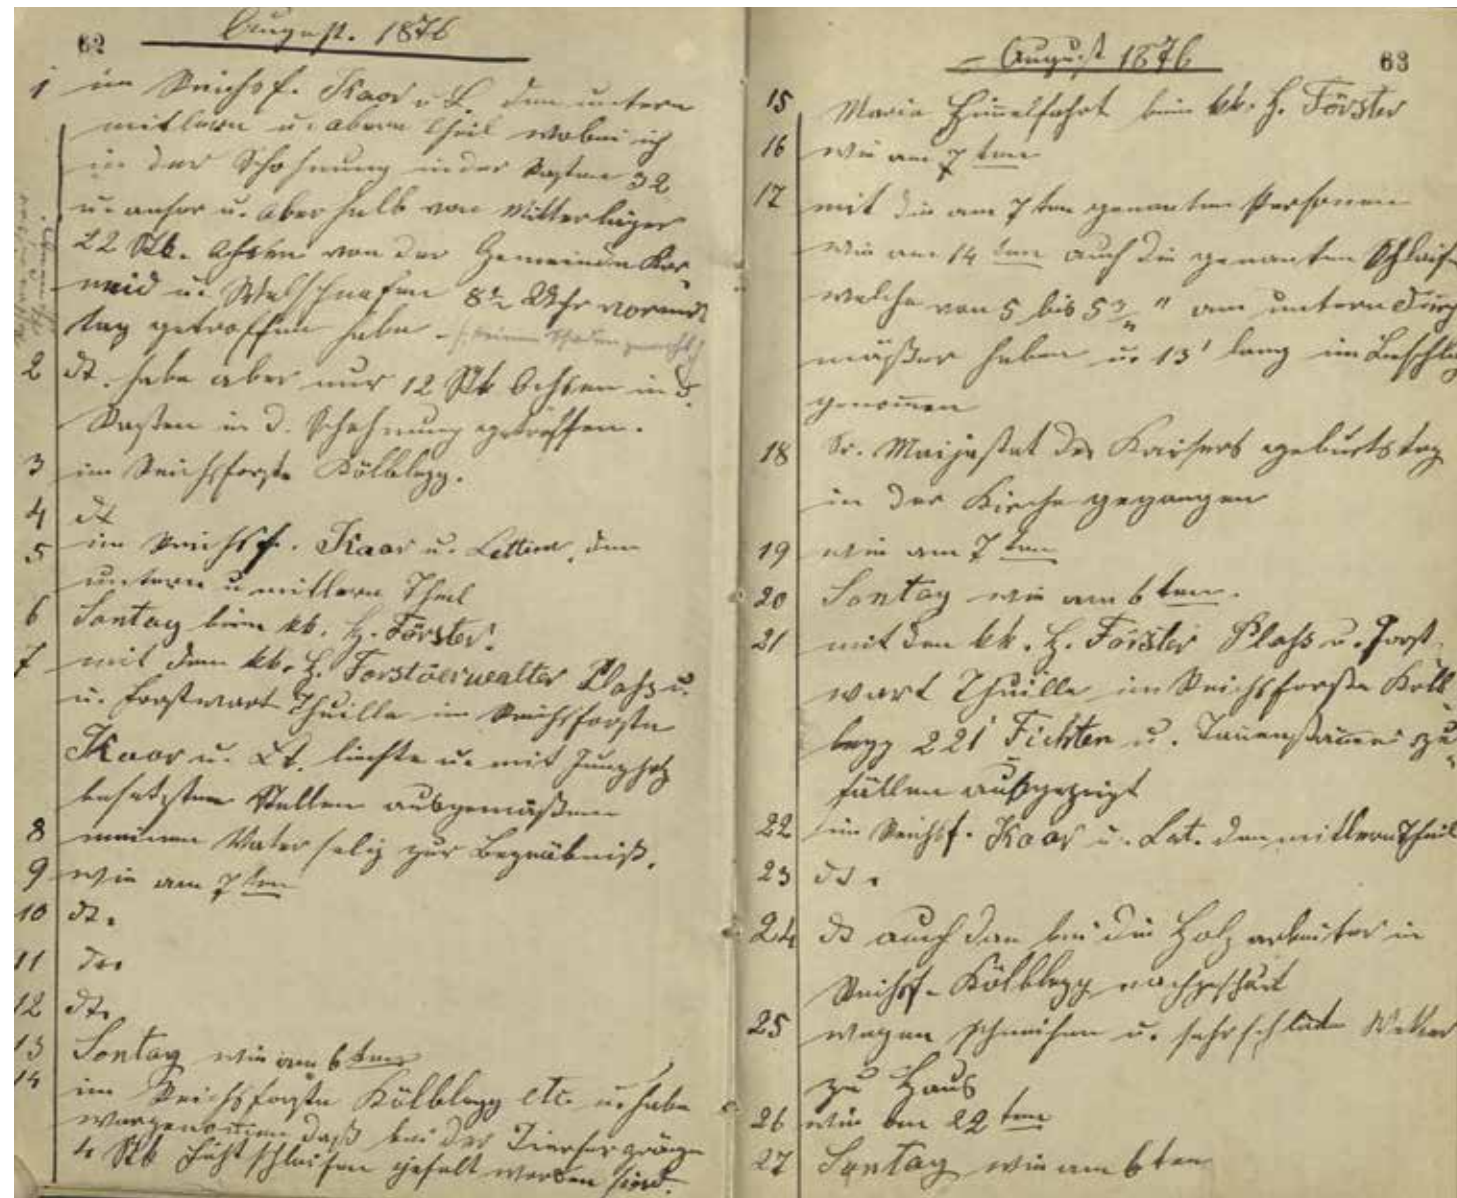 62
August. 1876
1 im Reichsf. Kaar u. L. den untern
mittlern u. obern Theil wobei ich
in der Schohnung in der
u. ober halb von
22 Stk. Ochsen von der Gemeinde Kar
neid u. Welschnofen 8½ Uhr vormit
tag getroffen habe
2 dt. habe aber nur 12 Stk Ochsen in d.
in d. Schohnung getroffen.
3 im Reichsforste Kölblegg.
4 dt
5 im Reichsf. Kaar u. den
untern u mittlern Theil
6 Sontag beim kk. H. Förster.
7 mit dem kk. H. Forstverwalter Ploss u.
u. Forstwart Thuille im Reichsforste
Kaar u. Lt. u. mit Jungholz
besetzten Stellen ausgemässen
8 meinen Vater selig zur Begräbniß.
9 wie am 7ten
10 dt.
11 dt.
12 dt.
13 Sontag wie am 6ten
14 im Reichsforste Kölblegg etc. u. habe
wargenomen daß bei der
4 Stk gefelt worden sind.
August 1876
63
15 Maria Himelfahrt beim kk. H. Förster
16 wie am 7ten
17 mit die am 7ten genanten Personen
wie am 14ten auch die genanten
welche von 5 bis am untern Durch
mässer haben u. 13' lang im Beschlag
genomen
18 Sr. Maijestat des Kaisers geburtstag
in der Kirche gegangen
19 wie am 7ten
20 Sontag wie am 6ten.
21 mit den kk. H. Förster Ploss u. Forst
wart Thuille im Reichsforste Kölb
legg 221 Fichten u. zu
fällen ausgezeigt
22 im Reichsf. Kaar u. Lat. den mittlern Theil
23 dt.
24 dt auch dan bei die Holz arbeiter in
Reichsf. Kölblegg nachgeschaut
25 wegen schneihen u. sehr schlecht Wetter
zu Haus
26 wie am 22ten
27 Sontag wie am 6ten